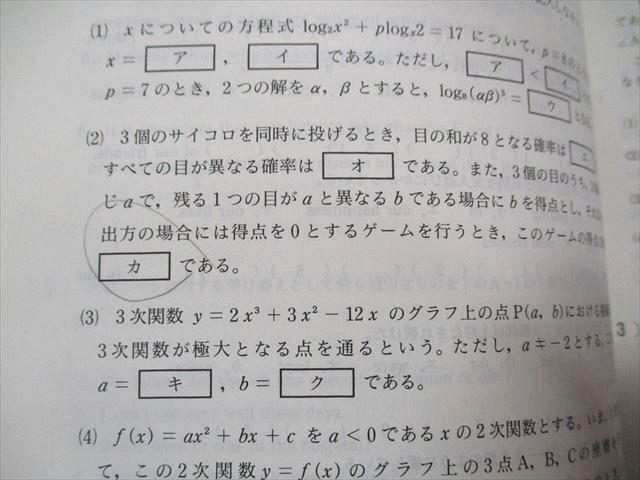 (1) xについての方程式 log₂x² + plogₓ2 = 17 について, p = 8のとき
x = ア , イ である。ただし, ア < イ
p = 7のとき, 2つの解をα, βとすると, log₈(αβ)⁵ = ウ とな
(2) 3個のサイコロを同時に投げるとき, 目の和が8となる確率は エ
すべての目が異なる確率は オ である。また, 3個の目のうち,
じaで, 残る1つの目がaと異なるbである場合にbを得点とし, それ以
出方の場合には得点を0とするゲームを行うとき, このゲームの得点の
カ である。
(3) 3次関数 y = 2x³ + 3x² − 12x のグラフ上の点P(a, b)における
3次関数が極大となる点を通るという。ただし, a ≠ −2とする。
a = キ , b = ク である。
(4) f(x) = ax² + bx + c を a < 0 である x の2次関数とする。いま,
て, この2次関数 y = f(x) のグラフ上の3点A, B, Cの座標